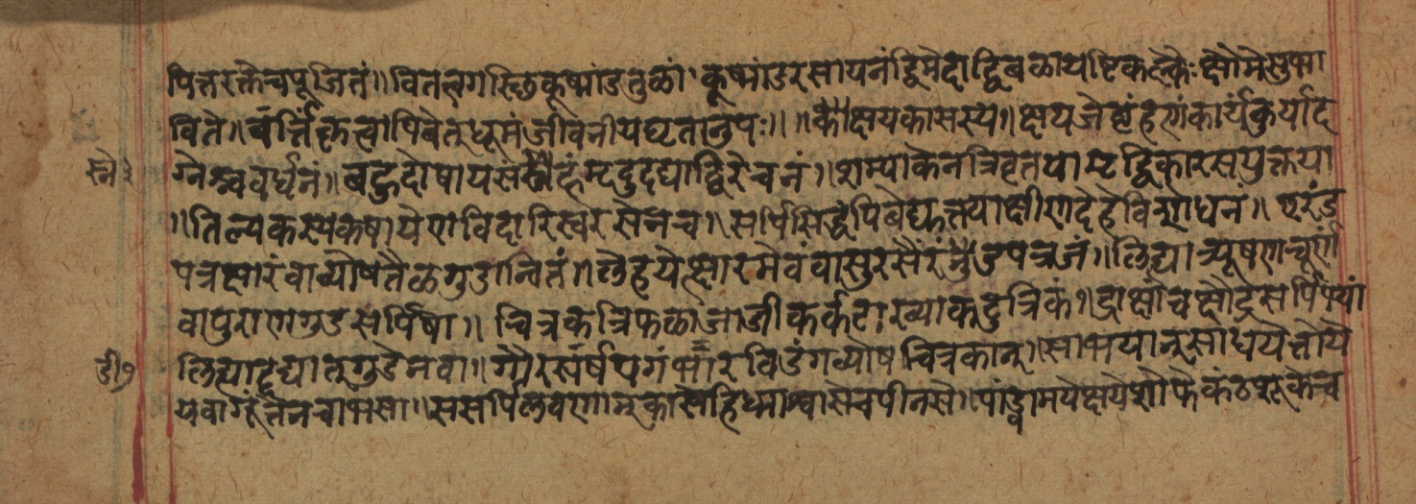 पित्तरक्तेचपूजितं॥वितत्वगस्छिकूष्मांडतुळां॰कूष्मांडरसायनंद्विमेदाद्विबळायष्टिकल्कैःक्षौमेसुष्मा
विते॥वर्त्तिकृत्वापिबेत्धूमंजीवनीयघृतानुपः॥॥क्षयकासस्य॥क्षयजेबृंहणंकार्यंकुर्याद
स्ने२
ग्नेश्चवर्धनं॥बहुदोषायसस्नेहंमृदुदद्याद्विरेचनं॥शम्याकेनत्रिवृतयामृद्विकारसयुक्तया
॥तिल्वकस्यकषायेणविदारिस्वरसेनच॥सर्पिसिद्धंपिबेद्युक्त्याक्षीणदेहेविशोधनं॥एरंड
पत्रक्षारंवाव्योषतैळगुडान्वितं॥लेहयेत्क्षारमेवंवासुरसैरंडपत्रजं॥लिह्यात्र्यूषणचूर्णं
वापुराणगुडसर्पिषा॥चित्रकंत्रिफळाजाजीकर्कटाख्याकटुत्रिकं॥द्राक्षांचक्षौद्रसर्पिभ्यां
डी७
लिह्यादद्यात्गुडेनवा॥गौरसर्षपगंभारविडंगव्योषचित्रकान्॥साभयान्साधयेत्तोये
यवागूंतेनचाम्भसा॥ससर्पिलवणाम्कासहिध्माश्वासेचपीनसे॥पांड्वामयेक्षयेशोफेकंठ